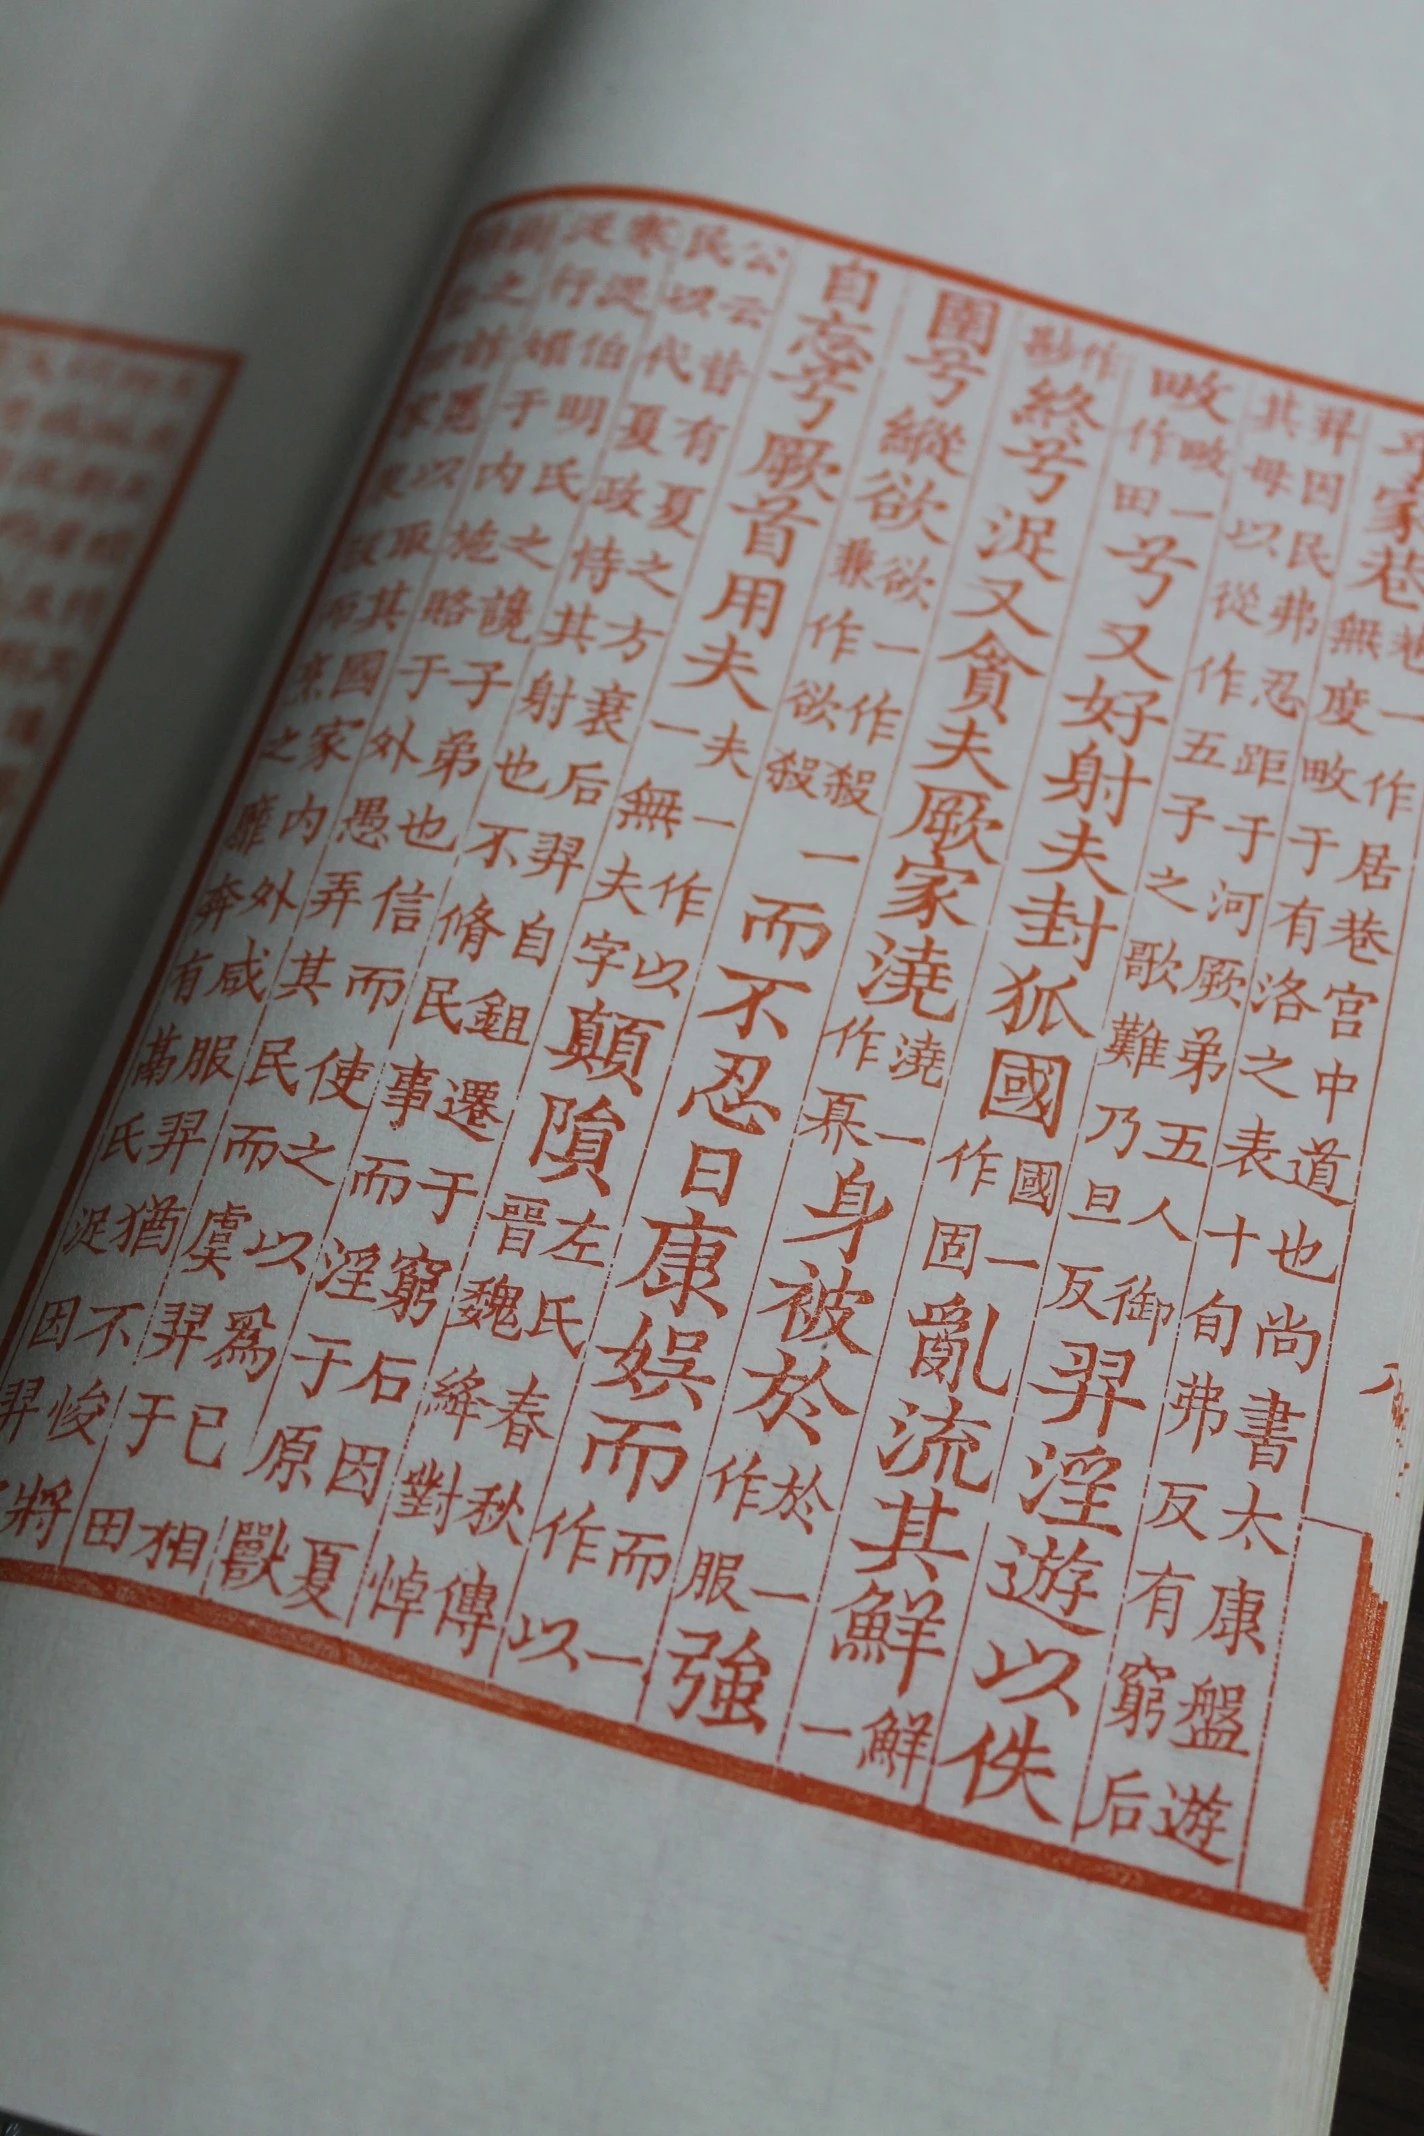 家巷巷一作居巷宮中道也尚書太康盤遊無度畋于有洛之表十旬弗反有窮后
羿因民弗忍距于河厥弟五人御其母以從作五子之歌難乃旦反羿淫遊以佚
畋畋一作田兮又好射夫封狐國國一作固亂流其鮮鮮一
作尠終兮浞又貪夫厥家澆澆一作奡身被於於一作服強
圉兮縱欲欲一作殺兼作欲殺一而不忍日康娛而而一作以
自忘兮厥首用夫夫一作以一無夫字顛隕左氏春秋傳晉魏絳對悼
公云昔有夏之方衰后羿自鉏遷于窮石因夏民以代夏政恃其射也不脩民事而淫于原獸
寒浞伯明氏之讒子弟也信而使之以爲已相浞行媚于內施賂于外愚弄其民而虞羿于田
樹之詐慝以取其國家內外咸服羿猶不悛將家衆殺而烹之靡奔有鬲氏浞因羿